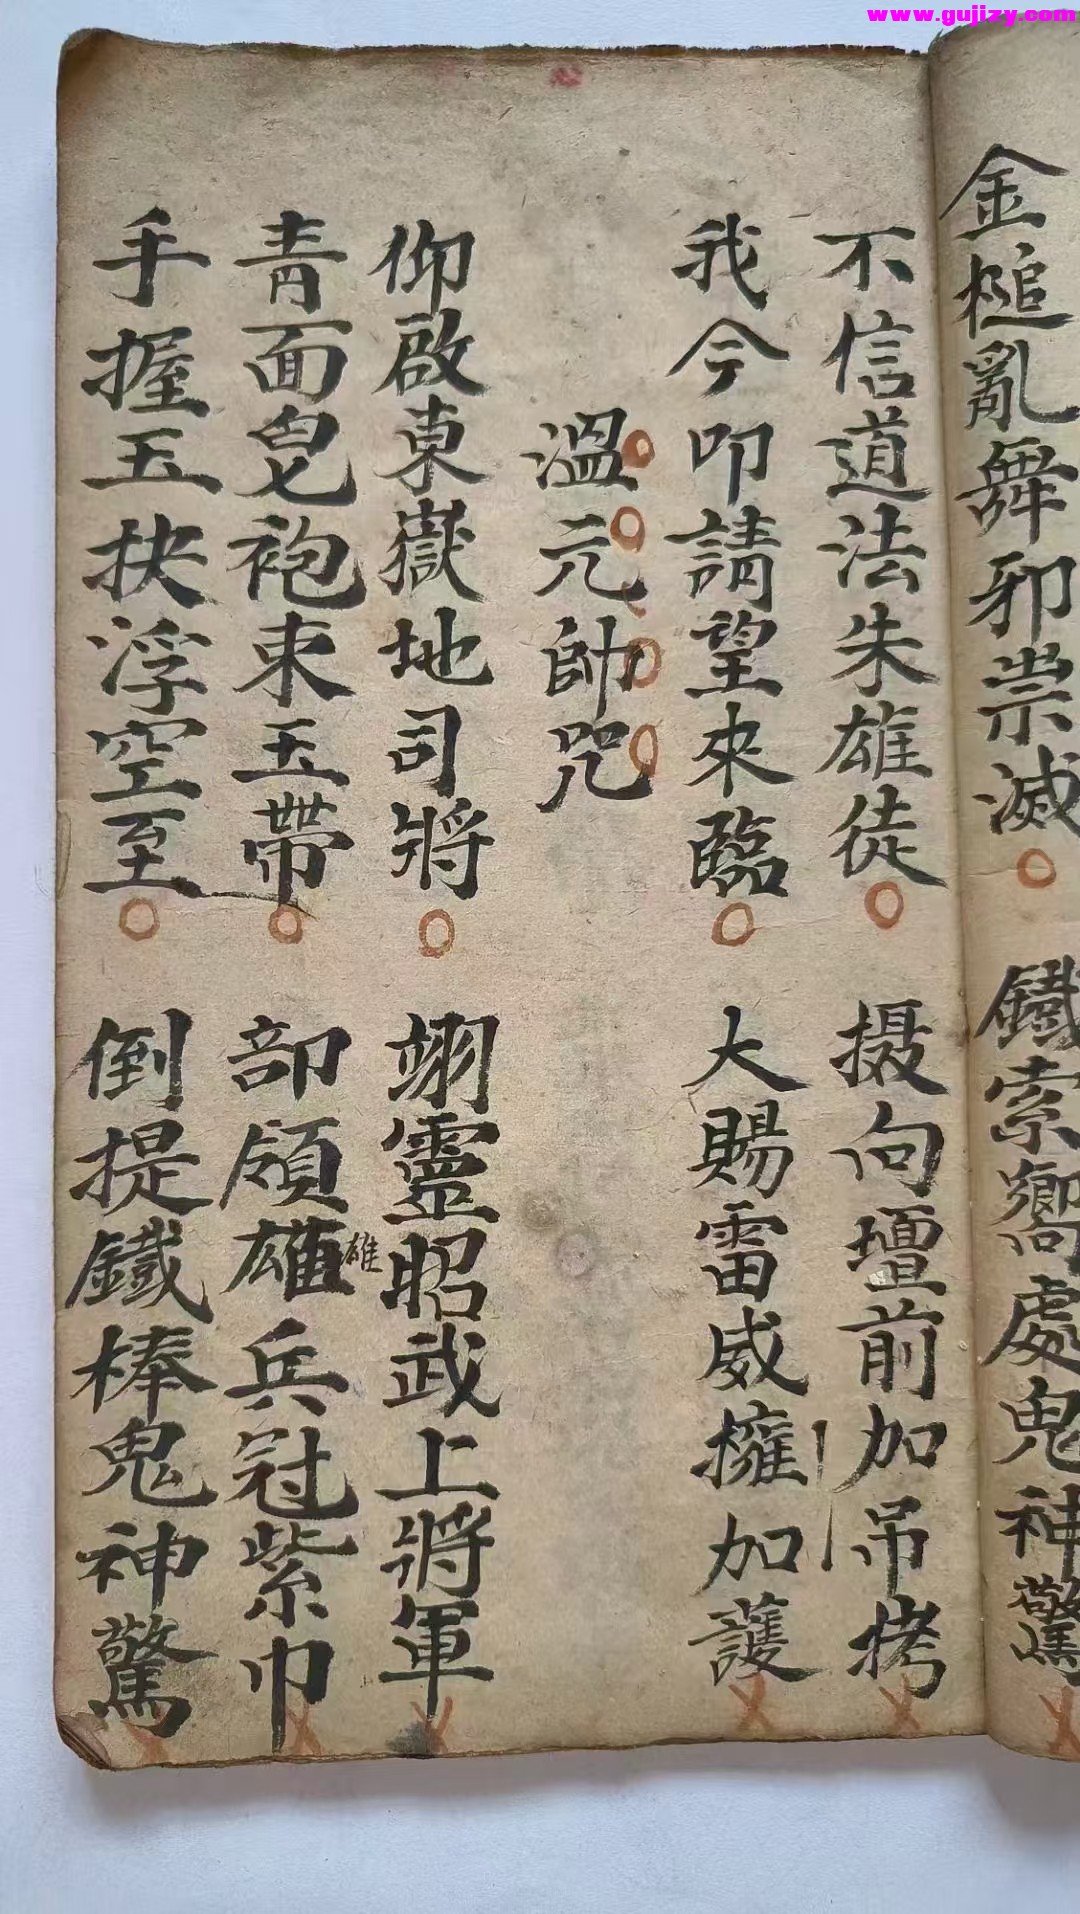 www.gujizy.com
金槌亂舞邪祟滅 鐵索響處鬼神驚
不信道法朱雄徒 摄向壇前加吊拷
我今叩請望來臨 大賜雷威擁加護
溫元帥咒
仰啟東嶽地司將 翊靈昭武上將軍
青面皂袍束玉帶 部領雄兵冠紫巾
雄
手握玉抉浮空至 倒提鐵棒鬼神驚